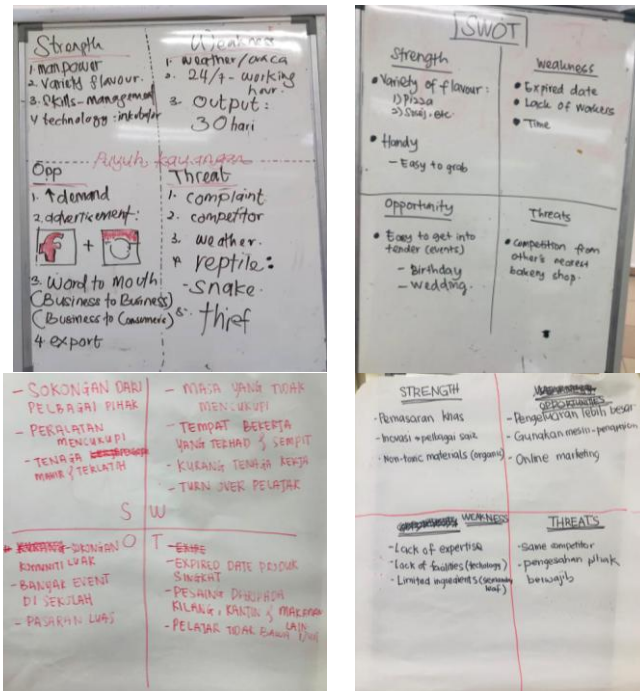 Strength
1. manpower
2. Variety flavour.
3. Skills-management
4 technology: inkubator
Weakness
1. weather/cuaca
2. 24/7 - working
hour.
3. OUTPUT:
30 hari
Puyuh kayangan
Opp
1. ↑ demand
2. advertisement:
f +
3. Word to Mouth
(Business to Business)
(Business to Consumers)
4 export
Threat
1. complaint
2. competitor
3. weather.
4. reptile:
- snake.
5. thief
SWOT
Strength
• Variety of flavour:
1) Pizza
2) etc.
• Handy
- Easy to grab
Weakness
• Expired date
• Lack of workers
• Time
Opportunity
• Easy to get into
tender (events)
- Birthday
- Wedding
Threats
• Competition from
other's nearest
bakery shop.
- SOKONGAN DARI
PELBAGAI PIHAK
- PERALATAN
MENCUKUPI
- TENAGA
MAHIR & TERLATIH
S
- MASA YANG TIDAK
MENCUKUPI
- TEMPAT BEKERJA
YANG TERHAD & SEMPIT
- KURANG TENAGA KERJA
- TURN OVER PELAJAR
W
O
- SOKONGAN
KOMUNITI LUAR
- BANYAK EVENT
DI SEKOLAH
- PASARAN LUAS
T
- EXPIRED DATE PRODUK
SINGKAT
- PESAING DARIPADA
KILANG, KANTIN & MAKANAN
LAIN
- PELAJAR TIDAK BAWA
STRENGTH
- Pemasaran khas
- Inovasi - pelbagai saiz
- Non-toxic materials (organic)
OPPORTUNITIES
- Pengeluaran lebih besar
- Gunakan mesin
- Online marketing
WEAKNESS
- Lack of expertise
- Lack of facilities (technology)
- Limited ingredients (leaf)
THREATS
- Same competitor
- pengesahan pihak
berwajib